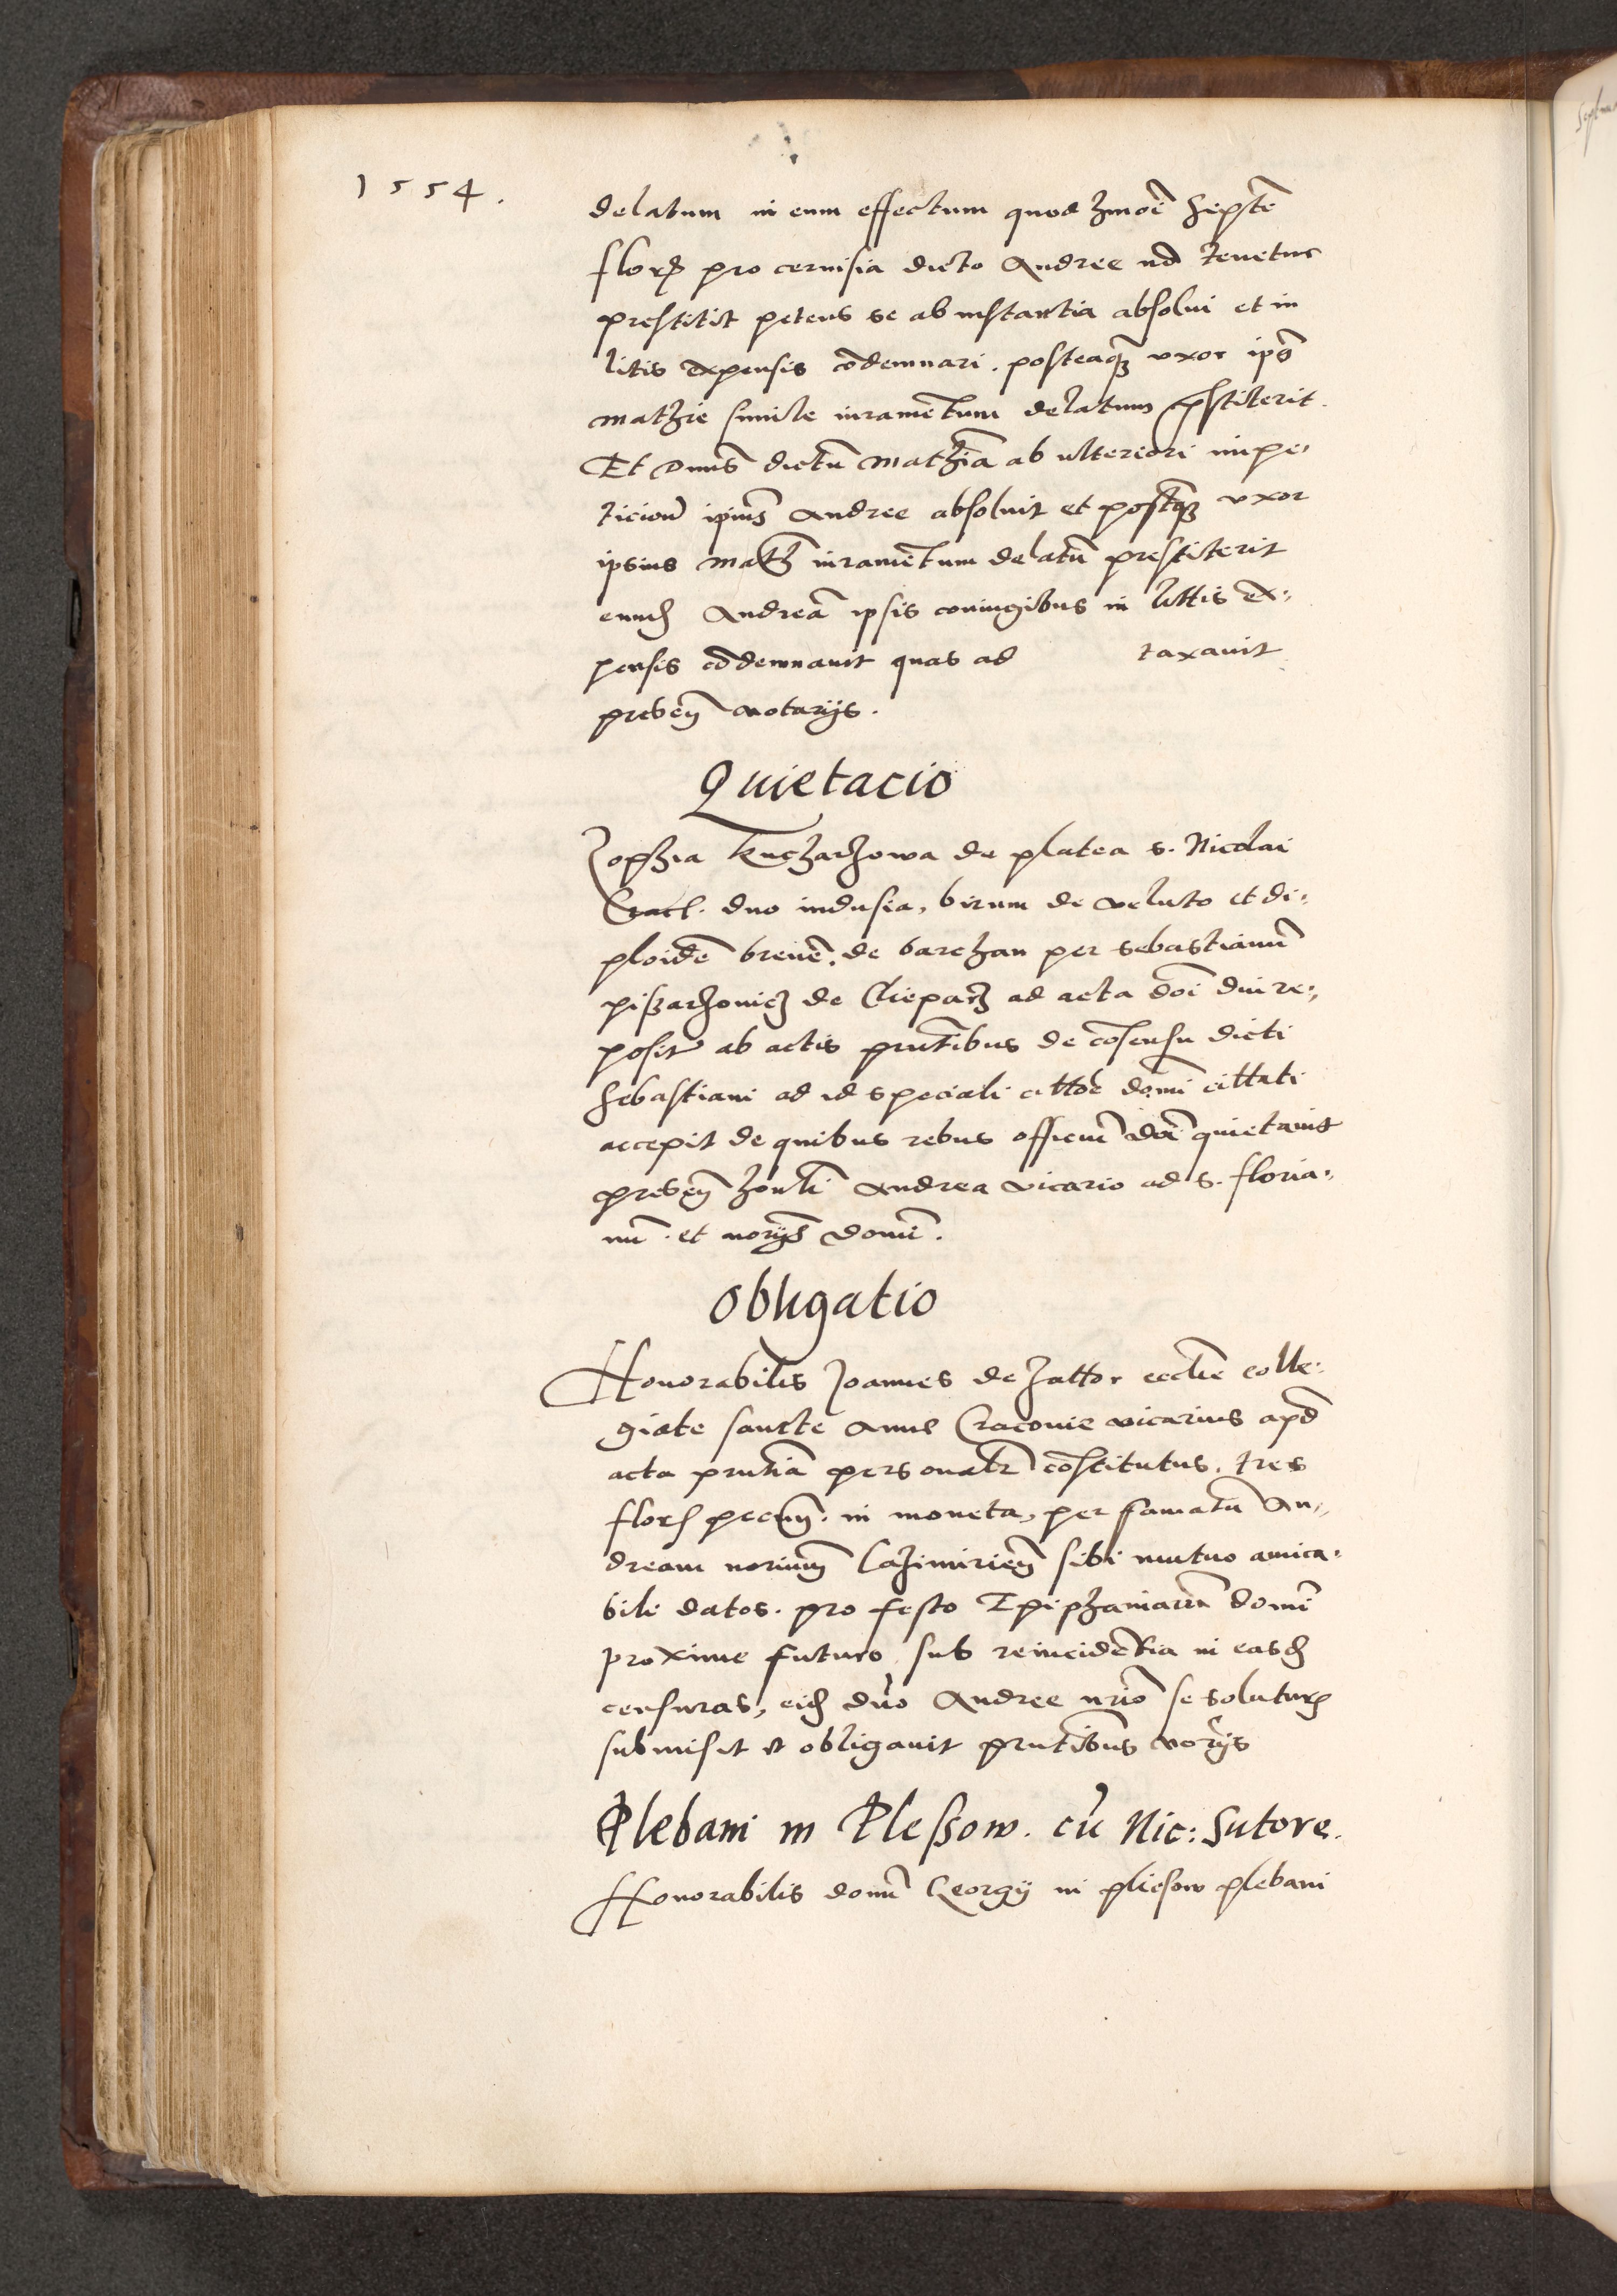 1554.
delatum in eum effectum quod hmōi septē
flor pro cervisia dicto Andree nō tenetur
prestitit petens se ab instantia absolvi et in
litis expensis cōdemnari. posteaq3 uxor ipsꝰ
mathie simile iuramētum delatum pstiterit.
Et Dnūs dictū mathiā ab ulteriori impe,
ticiōe ipiūs Andree absolvit et postq3 uxor
ipsius math iuramētum delatū prestiterit
eund Andreā ipsis coniugibus in littis ex,
pensis cōdemnavit quas ad taxavit
presēn notarijs.
Quietacio
Zophia kucharzowa de platea s. Nicolai
Crac. duo indusia, birum de veluto et di,
ploidē brevē. de barchan per sebastianū
pißarzowicz de Clieparz ad acta dōi dni re,
posit ab actis pntībus de cōsensu dicti
Sebastiani ad id speciali cittōe domī cittati
accepit de quibus rebus officiū dōi quietavit
presēn honli Andrea vicario ad s. floria,
nū. et norijs domī.
Obligatio
Honorabilis Joannes de Zattor ecclie colle,
giate sancte Anne Cracovie vicarius apd
acta pntia personalr cōstitutus. tres
flor pecun. in moneta, per famatū An,
dream norium Cazimirien sibi mutuo amica,
bili datos. pro festo Epiphaniarū domī
proxime futuro, sub reincidētia in easd
censuras, eid dno Andree nrio se soluturū
submisit et obligavit pntibus norijs
Plebani in Pleßow. cū Nic: Sutore.
Honorabilis domī Georgij in pliesow plebani